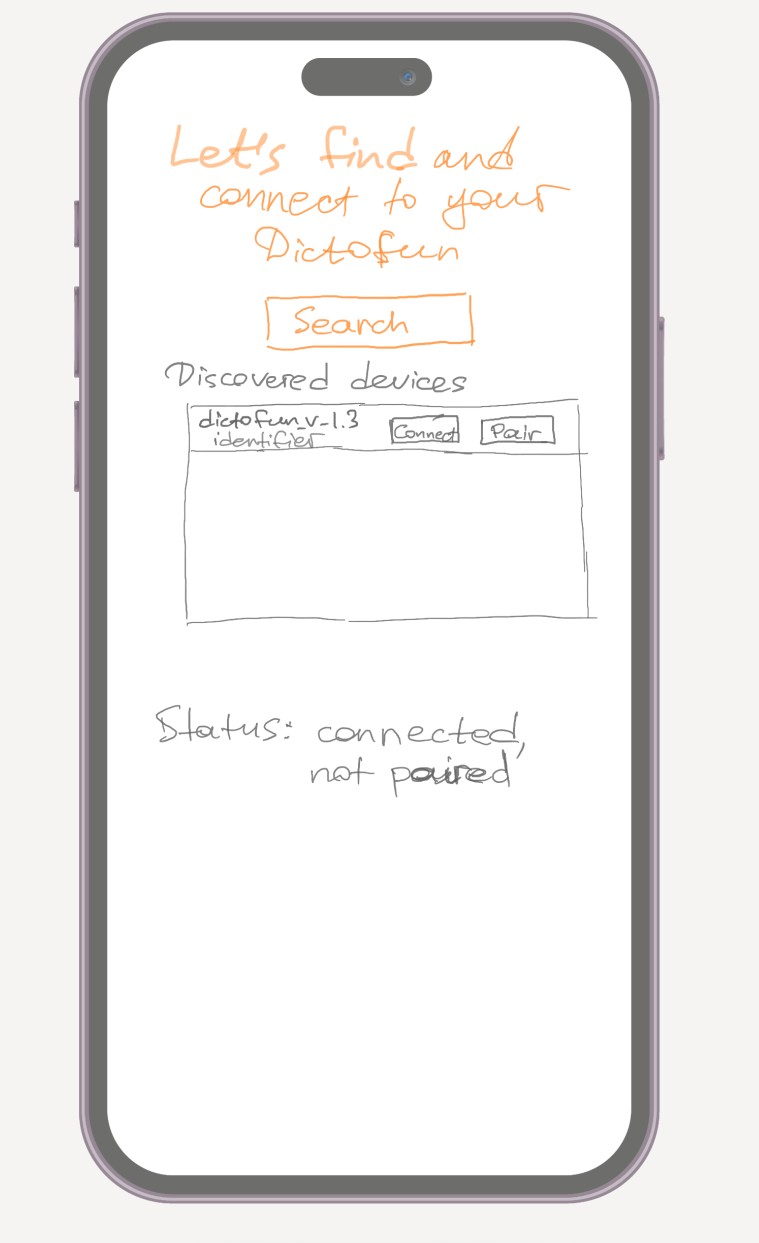 Let's find and
connect to your
Dictofun
Search
Discovered devices
dictofun_v-1.3
identifier
Connect
Pair
Status: connected,
not paired